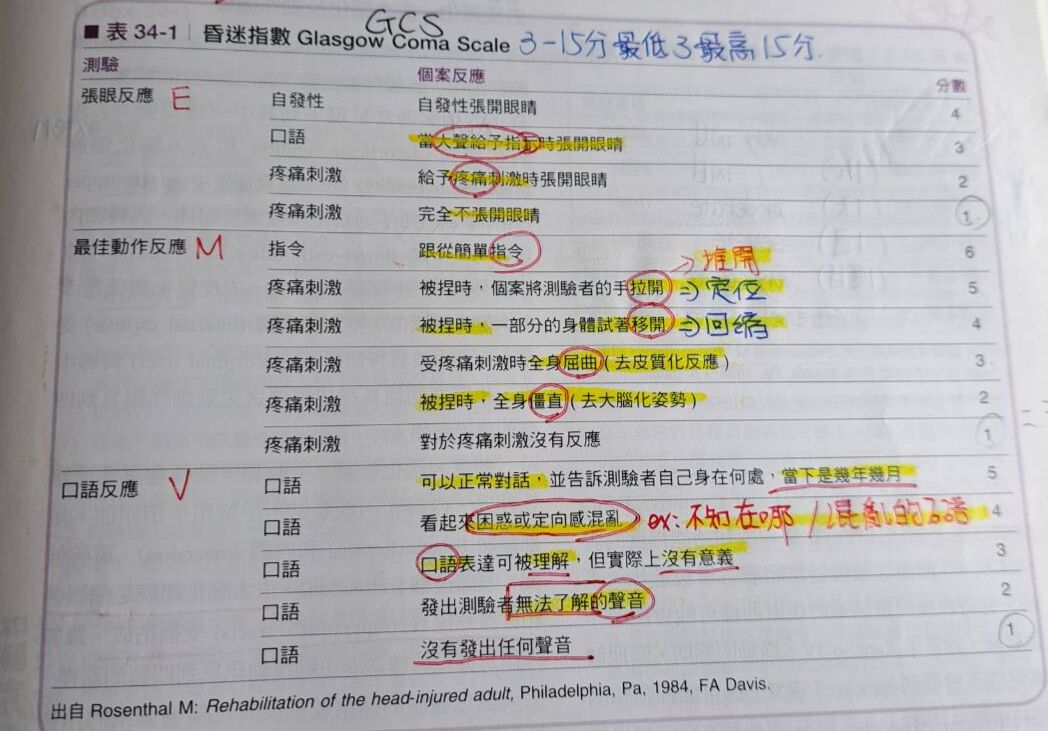 GCS
■ 表 34-1 | 昏迷指數 Glasgow Coma Scale 3-15分最低3最高15分.
測驗 個案反應 分數
張眼反應 E 自發性 自發性張開眼睛 4
口語 當大聲給予指示時張開眼睛 3
疼痛刺激 給予疼痛刺激時張開眼睛 2
疼痛刺激 完全不張開眼睛 1
最佳動作反應 M 指令 跟從簡單指令 6
→ 推開
疼痛刺激 被捏時,個案將測驗者的手拉開 ⇒ 定位 5
疼痛刺激 被捏時,一部分的身體試著移開 ⇒ 回縮 4
疼痛刺激 受疼痛刺激時全身屈曲(去皮質化反應) 3
疼痛刺激 被捏時,全身僵直(去大腦化姿勢) 2
疼痛刺激 對於疼痛刺激沒有反應 1
口語反應 V 口語 可以正常對話,並告訴測驗者自己身在何處,當下是幾年幾月 5
口語 看起來困惑或定向感混亂 ex: 不知在哪 / 混亂的 4
口語 口語表達可被理解,但實際上沒有意義 3
口語 發出測驗者無法了解的聲音 2
口語 沒有發出任何聲音 1
出自 Rosenthal M: Rehabilitation of the head-injured adult, Philadelphia, Pa, 1984, FA Davis.